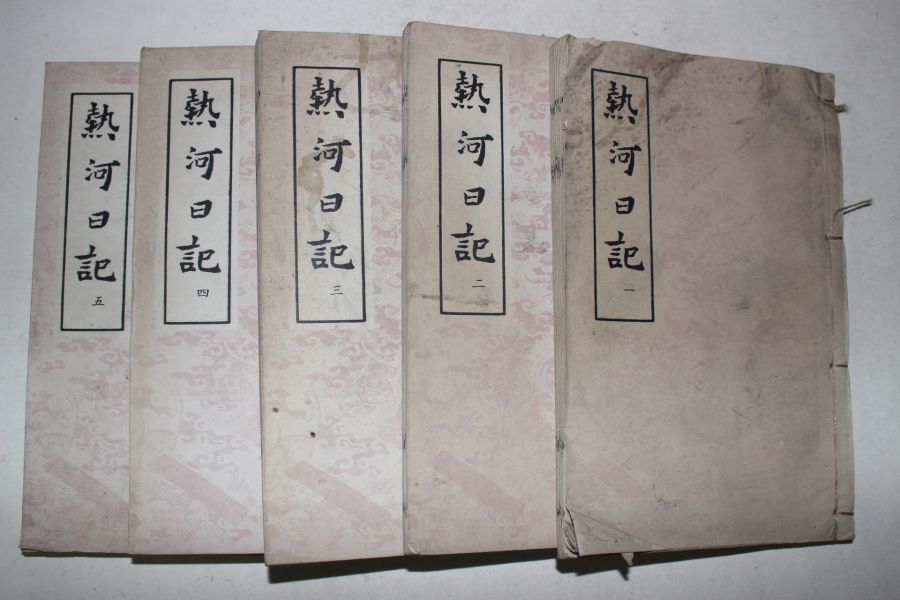 熱河日記 一
熱河日記 二
熱河日記 三
熱河日記 四
熱河日記 五